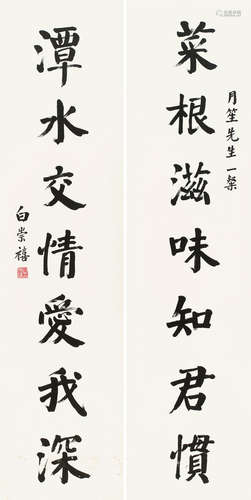 月笙先生一粲
菜根滋味知君慣
潭水交情愛我深
白崇禧